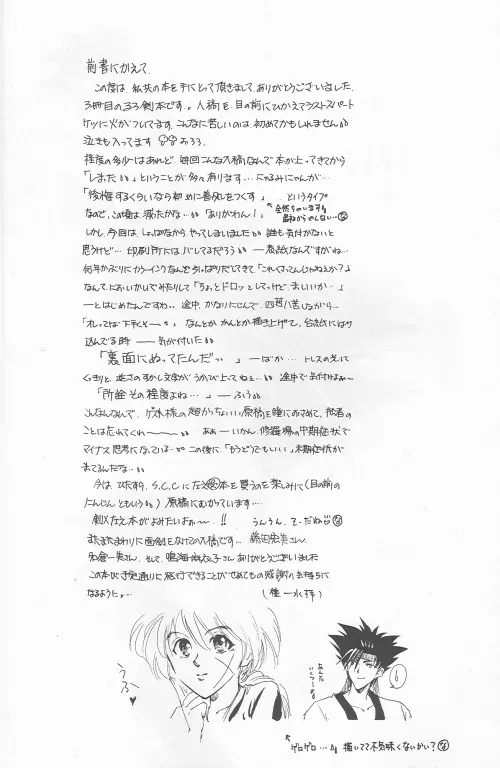 前書にかえて
この度は、私共の本を手にとって頂きまして、ありがとうございました。
3冊目のるろ剣本です。入稿を目の前にひかえてラストスパート
ケツに火がついてます。こんなに苦しいのは、初めてかもしれません
泣きも入ってます おろろ…
程度の多少はあれど、毎回こんな入稿なんで本が上ってきてから
「しまった」ということが多々有ります…
「後悔するくらいなら初めに善処をつくす」、というタイプ
なので、この度は減ったかな…「ありかわん！」
全然ちゃいます
しかし、今回は、しょっぱなから、やってしまいました 誰も気付かないと
思うけど… 印刷所にはバレてるだろう ― 表紙なんですがね…
何年かぶりにカラーインクなんぞ引っぱりだしてきて「これくさってんじゃねぇか？」
なんて、においかいでみたりして「ちょっとドロッとしてっけど、ましいいか…」
―とはじめたんですね。途中、かなりにじんで、四苦八苦しながら…
「オレってば下手く―」なんとかかんとか描き上げて、台紙にはり
込んでる時 ― 気が付いた
「裏面にぬってたんだっ」―ばか… トレスのすえに
くっきりと、逆さのすかし文字がうかび上ってねぇ… 途中で気付けよぉ～
「所詮その程度よね…」―ふぅ
こんなんなんで、ゲスト様の超かっちょいい原稿を瞳におさめて、能者の
ことは忘れてくれ～ ああ―いかん、修羅場の中期症状で
マイナス思考になっている… この後に、「もうどうでもいい」末期症状が
まってるんだな…
今は、ひたすら、S.C.Cに左之本を買うのを楽しみに（目の前の
にんじんともいう）原稿にむかっています…
剣×左之本がよみたいよぉ～!! うんうん、
またまたまわりに面倒をかけての入稿です。藤田さん、
名倉一実さん、そして、鳴海さんありがとうございました
この本が予定通りに発行できることがせめてもの感謝の気持ちに
なるように。
うふ♥
あんた いくつ…
ゲロゲロ… 描いてて不気味くないかい？